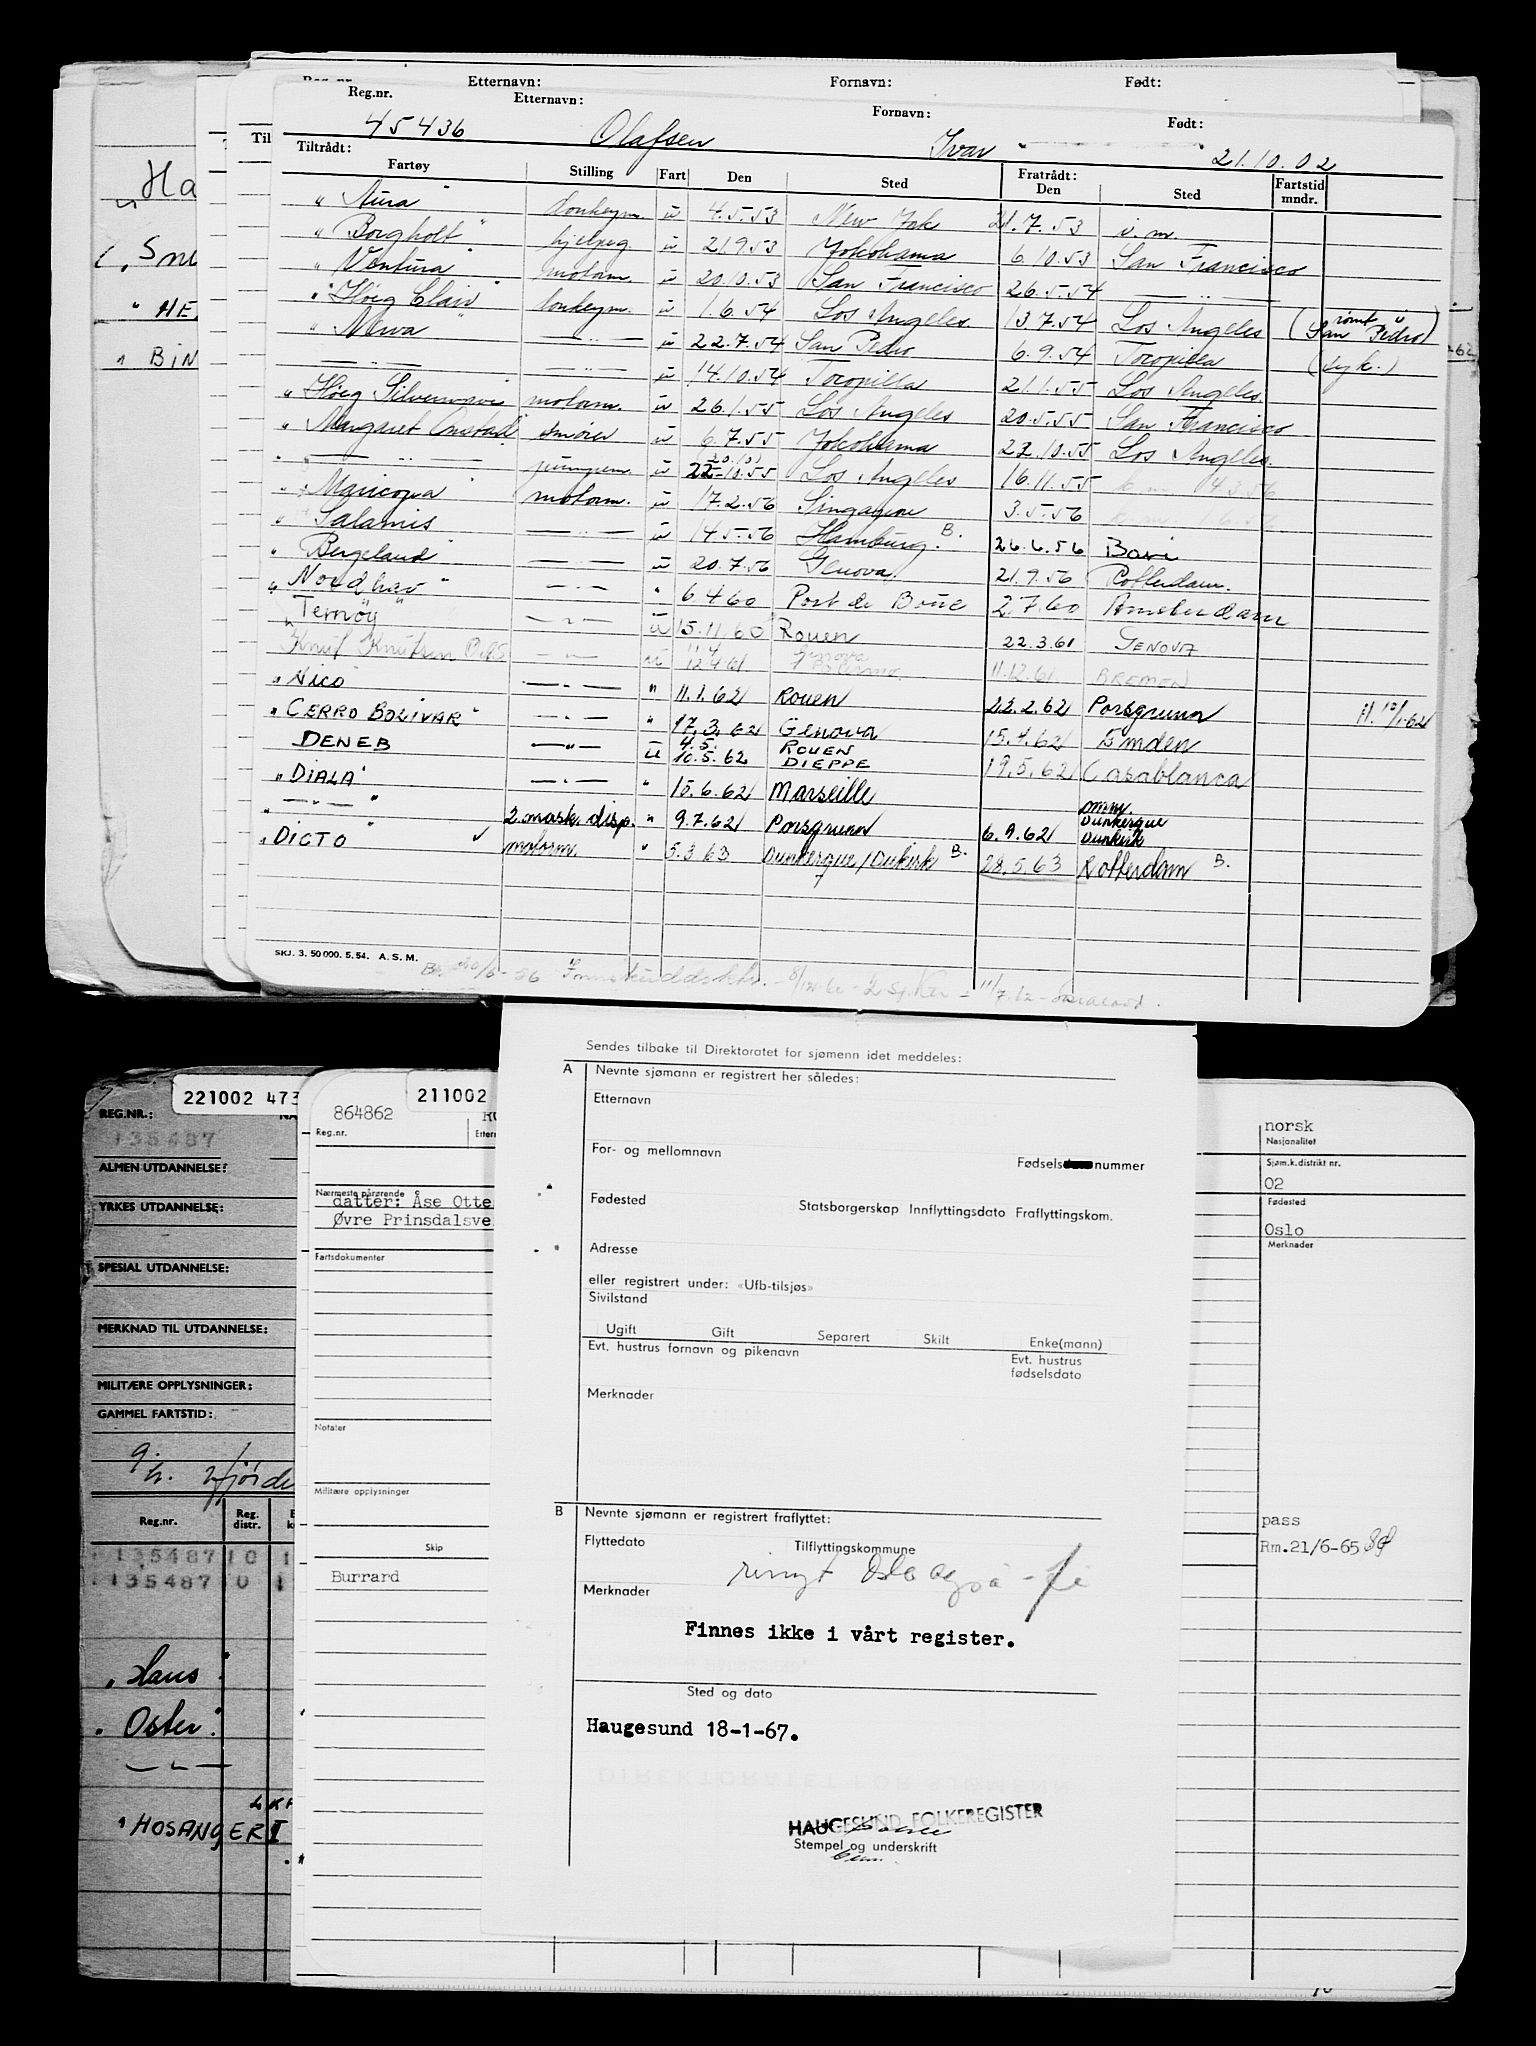 Reg.nr. Etternavn: Fornavn: Født:
Reg.nr. Etternavn: Fornavn: Født:
45436 Olafsen Ivar 21.10.02
Til
Tiltrådt: Fratrådt:
Fartøy Stilling Fart Den Sted Den Sted Fartstid mndr.
"Aura" donkeym. u 4.5.53 New York 21.7.53 s. m.
"Borgholt" hjelpeg. u 21.9.53 Yokohama 6.10.53 San Francisco
"Ventura" motorm. u 20.10.53 San Francisco 26.5.54 — " —
"Höeg Clair" donkeym. u 1.6.54 Los Angeles 13.7.54 Los Angeles (rømt San Pedro)
"Newa" — " — u 22.7.54 San Pedro 6.9.54 Tocopilla (syk.)
— " — — " — u 14.10.54 Tocopilla 21.1.55 Los Angeles.
"Höeg Silverwave" motorm. u 26.1.55 Los Angeles 20.5.55 San Francisco
"Margaret Onstad" smører u 6.7.55 Yokohama 22.10.55 Los Angeles.
— " — pumpem. u 22.10.55 Los Angeles 16.11.55
"Maricopa" motorm. u 17.2.56 Singapore 3.5.56
"Salamis — " — u 14.5.56 Hamburg. B. 26.6.56 Bari
"Bergeland" — " — u 20.7.56 Genova. 21.9.56 Rotterdam.
"Nordhav" — " — " 6.4.60 Port de Bouc 2.7.60 Amsterdam
"Ternøy" — " — u 15.11.60 Rouen 22.3.61 GENOVA
Knut Knutsen O.A.S. — " — u 12.4.61 Genova 11.12.61 BREMEN
"Nico — " — " 11.1.62 Rouen 22.2.62 Porsgrunn
"CERRO BOLIVAR" — " — " 17.3.62 Genova 15.4.62 Emden
DENEB — " — u 4.5. 10.5.62 ROUEN DIEPPE 19.5.62 Casablanca
"DIALA" — " — " 15.6.62 Marseille mm.
— " — 2.mask.disp. " 9.7.62 Porsgrunn 6.9.62 Dunkerque Dunkirk
"DICTO" motorm. " 5.3.63 Dunkerque/Dukirk B. 28.5.63 Rotterdam B.
SKJ. 3. 50 000. 5. 54. A. S. M.
Ha
Sm
HE
BIN
221002 473
REG.NR.: NA
135487
ALMEN UTDANNELSE:
YRKES UTDANNELSE:
SPESIAL UTDANNELSE:
MERKNAD TIL UTDANNELSE:
MILITÆRE OPPLYSNINGER:
GAMMEL FARTSTID:
Reg.nr. Reg. distr.
135487 0 1
135487 0 1
"Haus"
"Oster"
"HOSANGER I
211002
864862
Reg.nr. Ettern
Nærmeste pårørende
datter: Åse Otte
Øvre Prinsdalsve
Fartsdokumenter
Notater
Militære opplysninger
Skip
Burrard
norsk
Nasjonalitet
Sjøm.k.distrikt nr.
02
Fødested
Oslo
Merknader
pass
Rm.21/6-65
Sendes tilbake til Direktoratet for sjømenn idet meddeles:
A Nevnte sjømann er registrert her således:
Etternavn
For- og mellomnavn Fødsels nummer
Fødested Statsborgerskap Innflyttingsdato Fraflyttingskom.
Adresse
eller registrert under: «Ufb-tilsjøs»
Sivilstand
Ugift Gift Separert Skilt Enke(mann)
Evt. hustrus fornavn og pikenavn Evt. hustrus fødselsdato
Merknader
B Nevnte sjømann er registrert fraflyttet:
Flyttedato Tilflyttingskommune
ringt Oslo også
Merknader
Finnes ikke i vårt register.
Sted og dato
Haugesund 18-1-67.
HAUGESUND FOLKEREGISTER
Stempel og underskrift